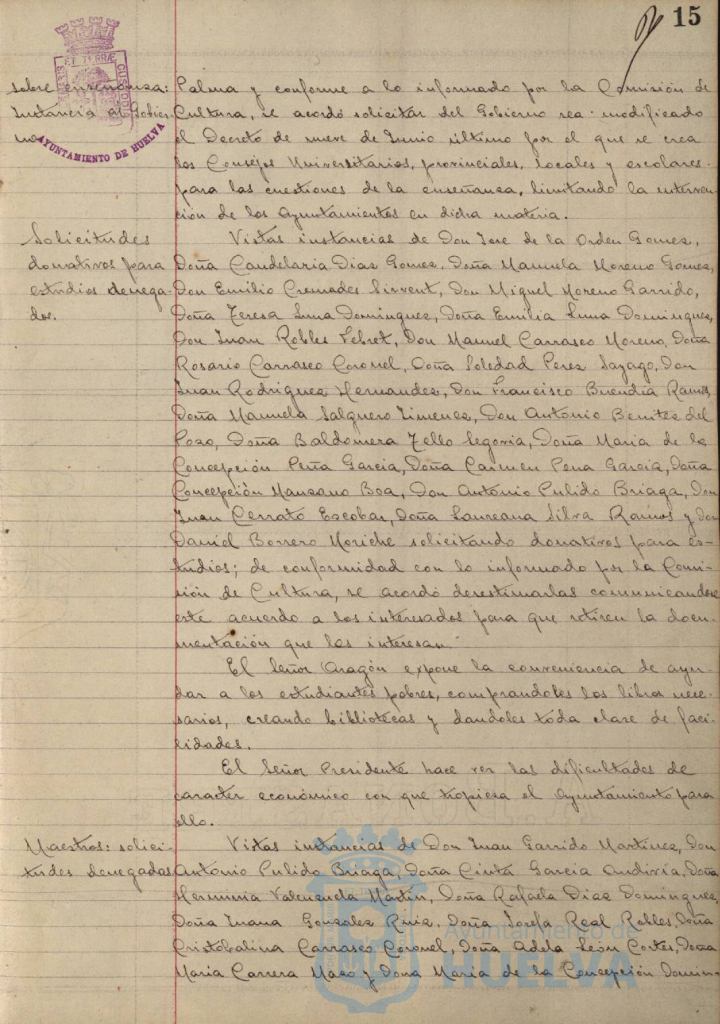 15
PORTUS MARIS ET TERRAE CUSTODIA
AYUNTAMIENTO DE HUELVA
sobre enseñanza:
Instancia al Gobier-
no
Palma y conforme a lo informado por la Comisión de
Cultura, se acordó solicitar del Gobierno sea modificado
el Decreto de nueve de Junio último por el que se crea
los Consejos Universitarios, provinciales, locales y escolares
para las cuestiones de la enseñanza, limitando la interven-
ción de los Ayuntamientos en dicha materia.
Solicitudes
donativos para
estudios denega-
dos.
Vistas instancias de Don Jose de la Orden Gomez,
Doña Candelaria Dias Gomez, Doña Manuela Moreno Gomez,
Don Emilio Cremades Sirvent, Don Miguel Moreno Garrido,
Doña Teresa Luna Dominguez, Doña Emilia Luna Dominguez,
Don Juan Robles Lebret, Don Manuel Carrasco Moreno, Doña
Rosario Carrasco Coronel, Doña Soledad Perez Sayago, Don
Juan Rodriguez Hernandez, Don Francisco Buendia Ramos,
Doña Manuela Salguero Jimenez, Don Antonio Benitez del
Pozo, Doña Baldomera Tello Segovia, Doña Maria de la
Concepción Peña Garcia, Doña Carmen Pena Garcia, Doña
Concepción Manzano Boa, Don Antonio Pulido Briaga, Don
Juan Cerrato Escobar, Doña Laureana Silva Ramos y don
Daniel Borrero Moriche solicitando donativos para es-
tudios; de conformidad con lo informado por la Comi-
sión de Cultura, se acordó desestimarlas comunicandose
este acuerdo a los interesados para que retiren la docu-
mentación que les interesan.
El Señor Aragón expone la conveniencia de ayu-
dar a los estudiantes pobres, comprandoles los libros nece-
sarios, creando bibliotecas y dandoles toda clase de faci-
lidades.
El Señor Presidente hace ver las dificultades de
caracter económico con que tropieza el Ayuntamiento para
ello.
Maestros: solici-
tudes denegadas
Vistas instancias de Don Juan Garrido Martinez, Don
Antonio Pulido Briaga, Doña Cinta Garcia Andivia, Doña
Herminia Valenzuela Martín, Doña Rafaela Diaz Domínguez,
Doña Juana Gonzalez Ruiz, Doña Josefa Real Robles, Doña
Cristobalina Carrasco Coronel, Doña Adela León Cortes, Doña
Maria Carrera Mazo y Dona Maria de la Concepción Domin-
Ayuntamiento de
HUELVA